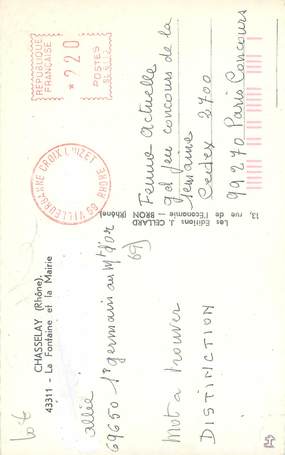 CHASSELAY (Rhône).
43311 - La Fontaine et la Mairie
allée
69650 St germain au Mt d'or
69)
Mot à trouver
DISTINCTION
Les Editions J. CELLARD
13, rue de l'Economie - BRON (Rhône)
REPUBLIQUE
FRANÇAISE
220
POSTES
69 VILLEURBANNE CROIX LUIZET
RHONE
Femme Actuelle
gd jeu concours de la
semaine
Cedex 2700
99270 Paris Concours